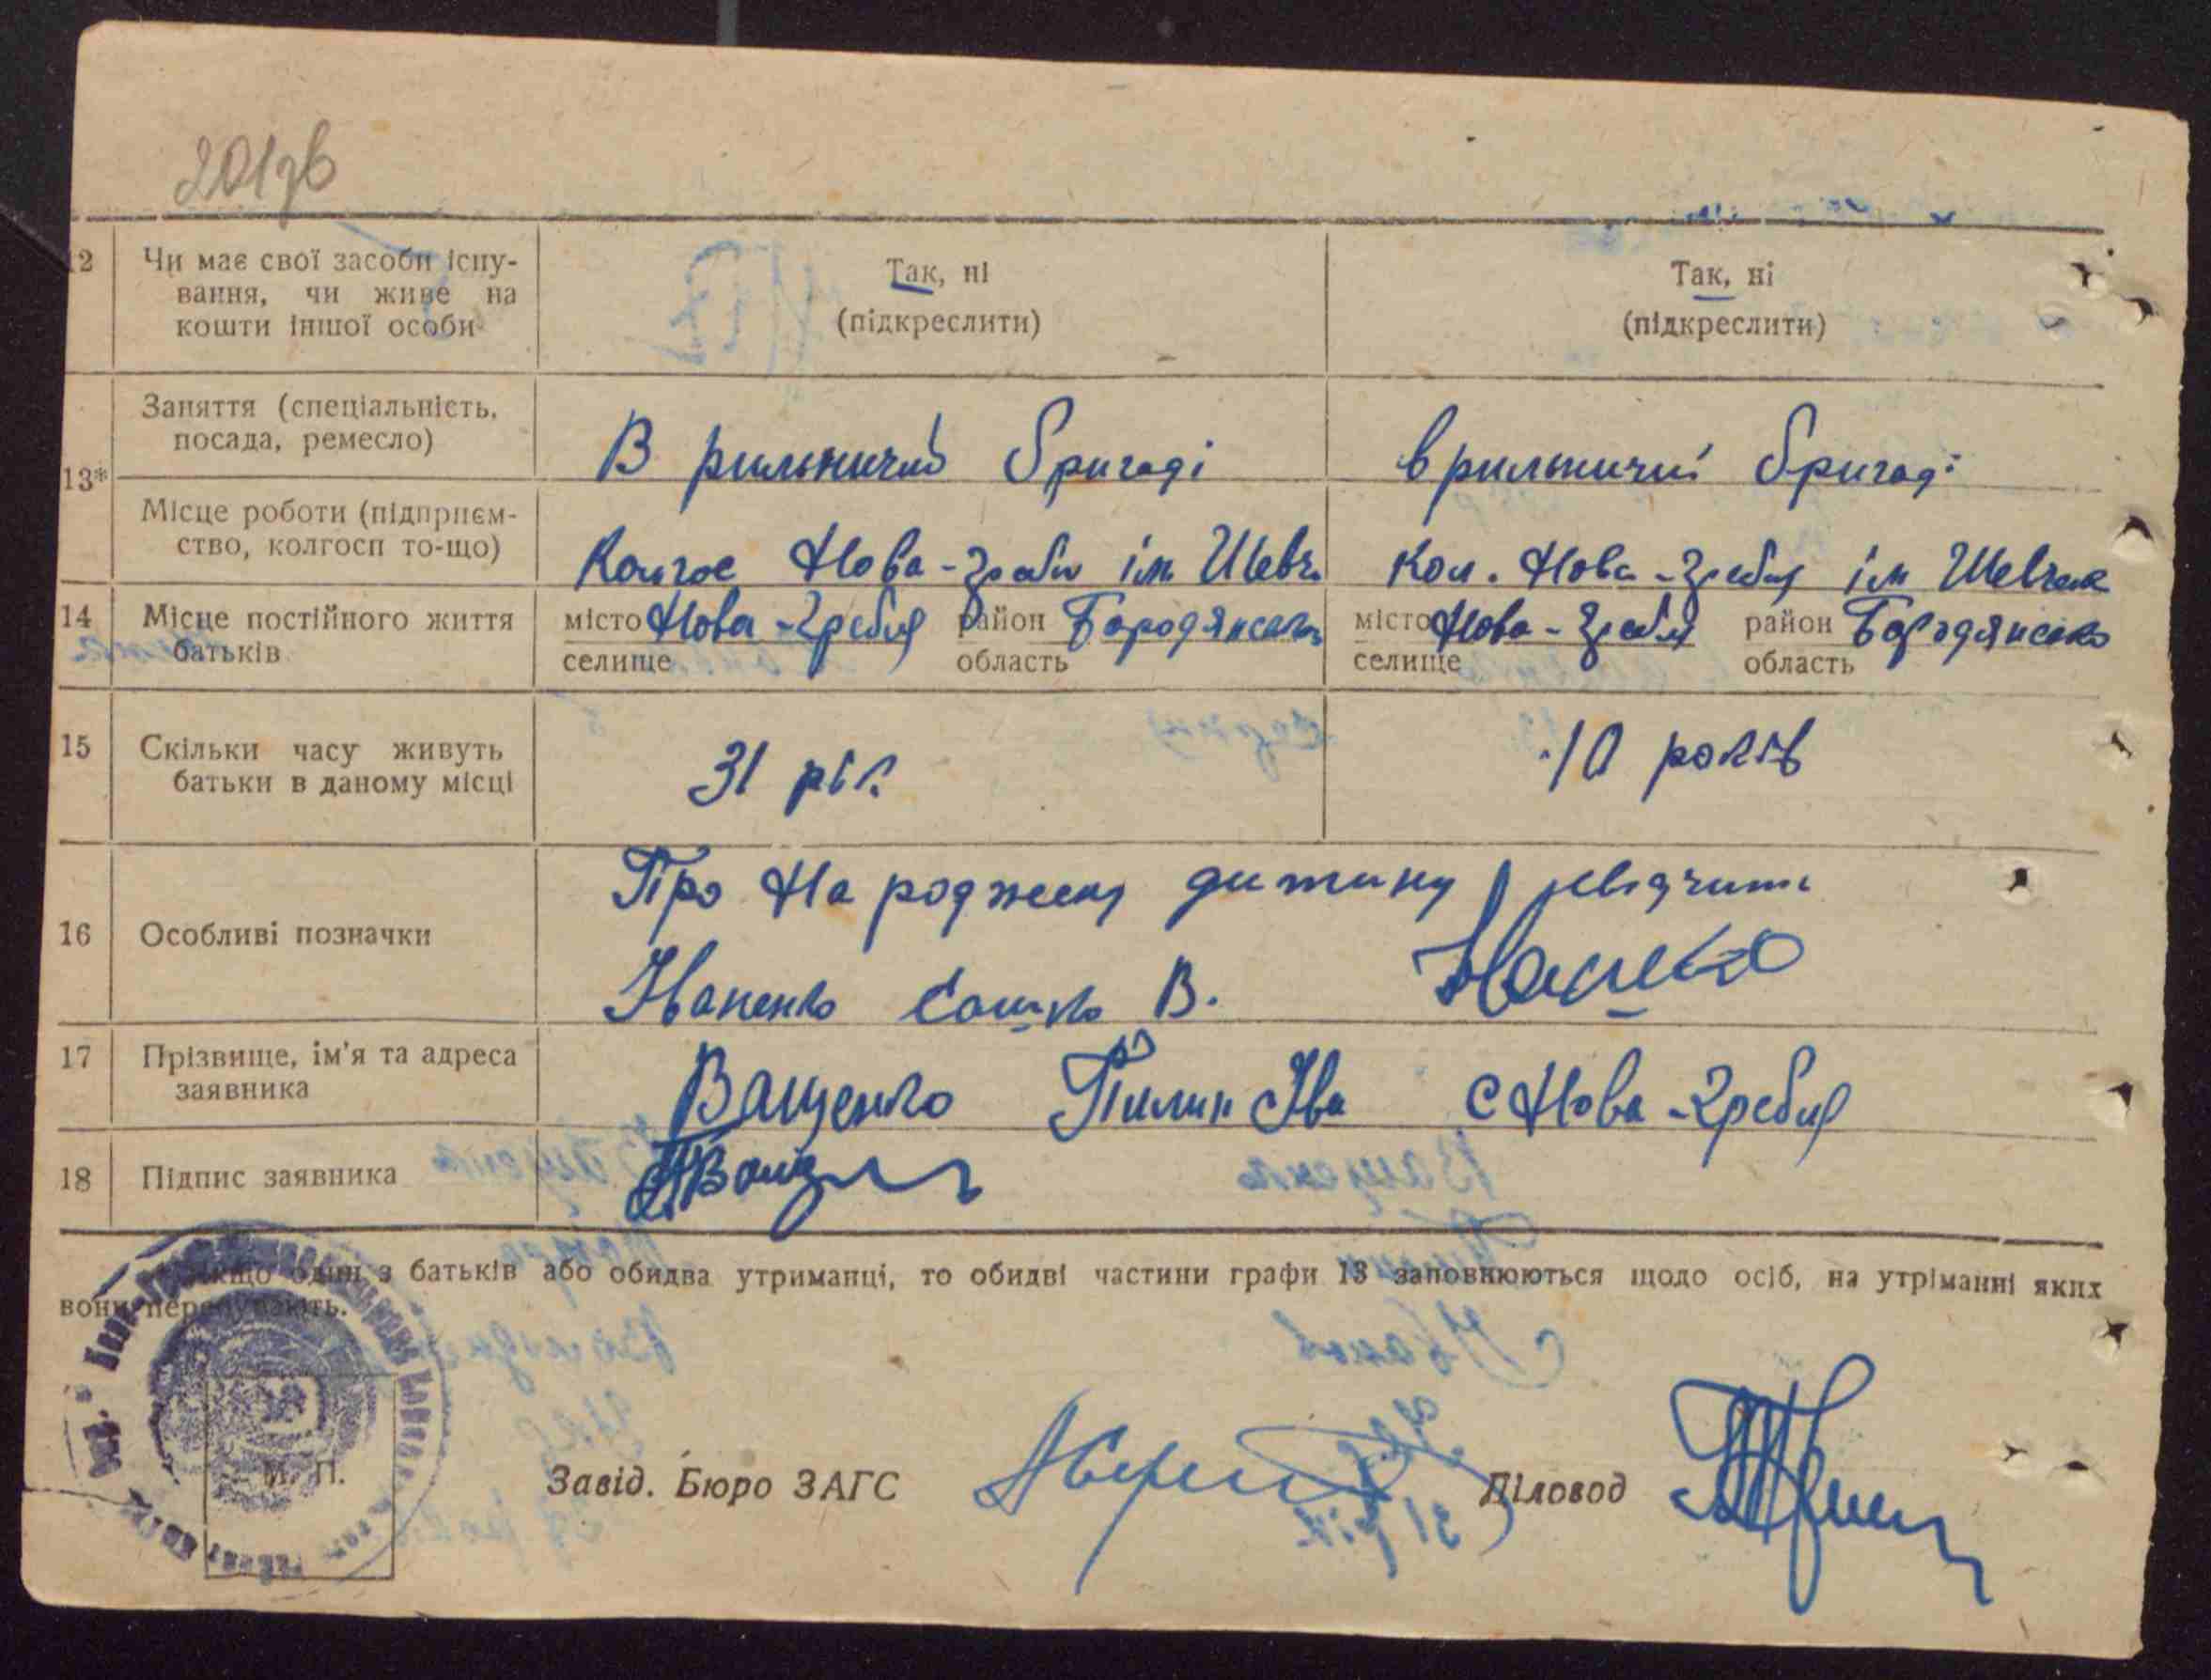 201зв
12 Чи має свої засоби існу- Так, ні Так, ні
вання, чи живе на (підкреслити) (підкреслити)
кошти іншої особи
13* Заняття (спеціальність, В рильничий бригаді в рильничий бригаді
посада, ремесло)
Місце роботи (підприєм- Колгос Нова-Гребля ім Шевч. Кол. Нова-Гребля ім Шевченк
ство, колгосп то-що)
14 Місце постійного життя місто Нова-Гребля район Бородянсько місто Нова-Гребля район Бородянсько
батьків селище область селище область
15 Скільки часу живуть 31 рік 10 років
батьки в даному місці
Про народжену дитину свідчить
16 Особливі позначки
Іваненко Сашко В.
17 Прізвище, ім'я та адреса Ващенко Пилип Іва с Нова-Гребля
заявника
18 Підпис заявника
Якщо один з батьків або обидва утриманці, то обидві частини графи 13 заповнюються щодо осіб, на утріманні яких
вони перебувають.
М. П.
Завід. Бюро ЗАГС Діловод